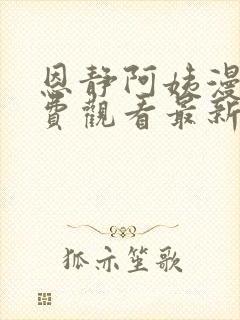 恩静阿姨漫
費觀看最新
狐亦笙歌